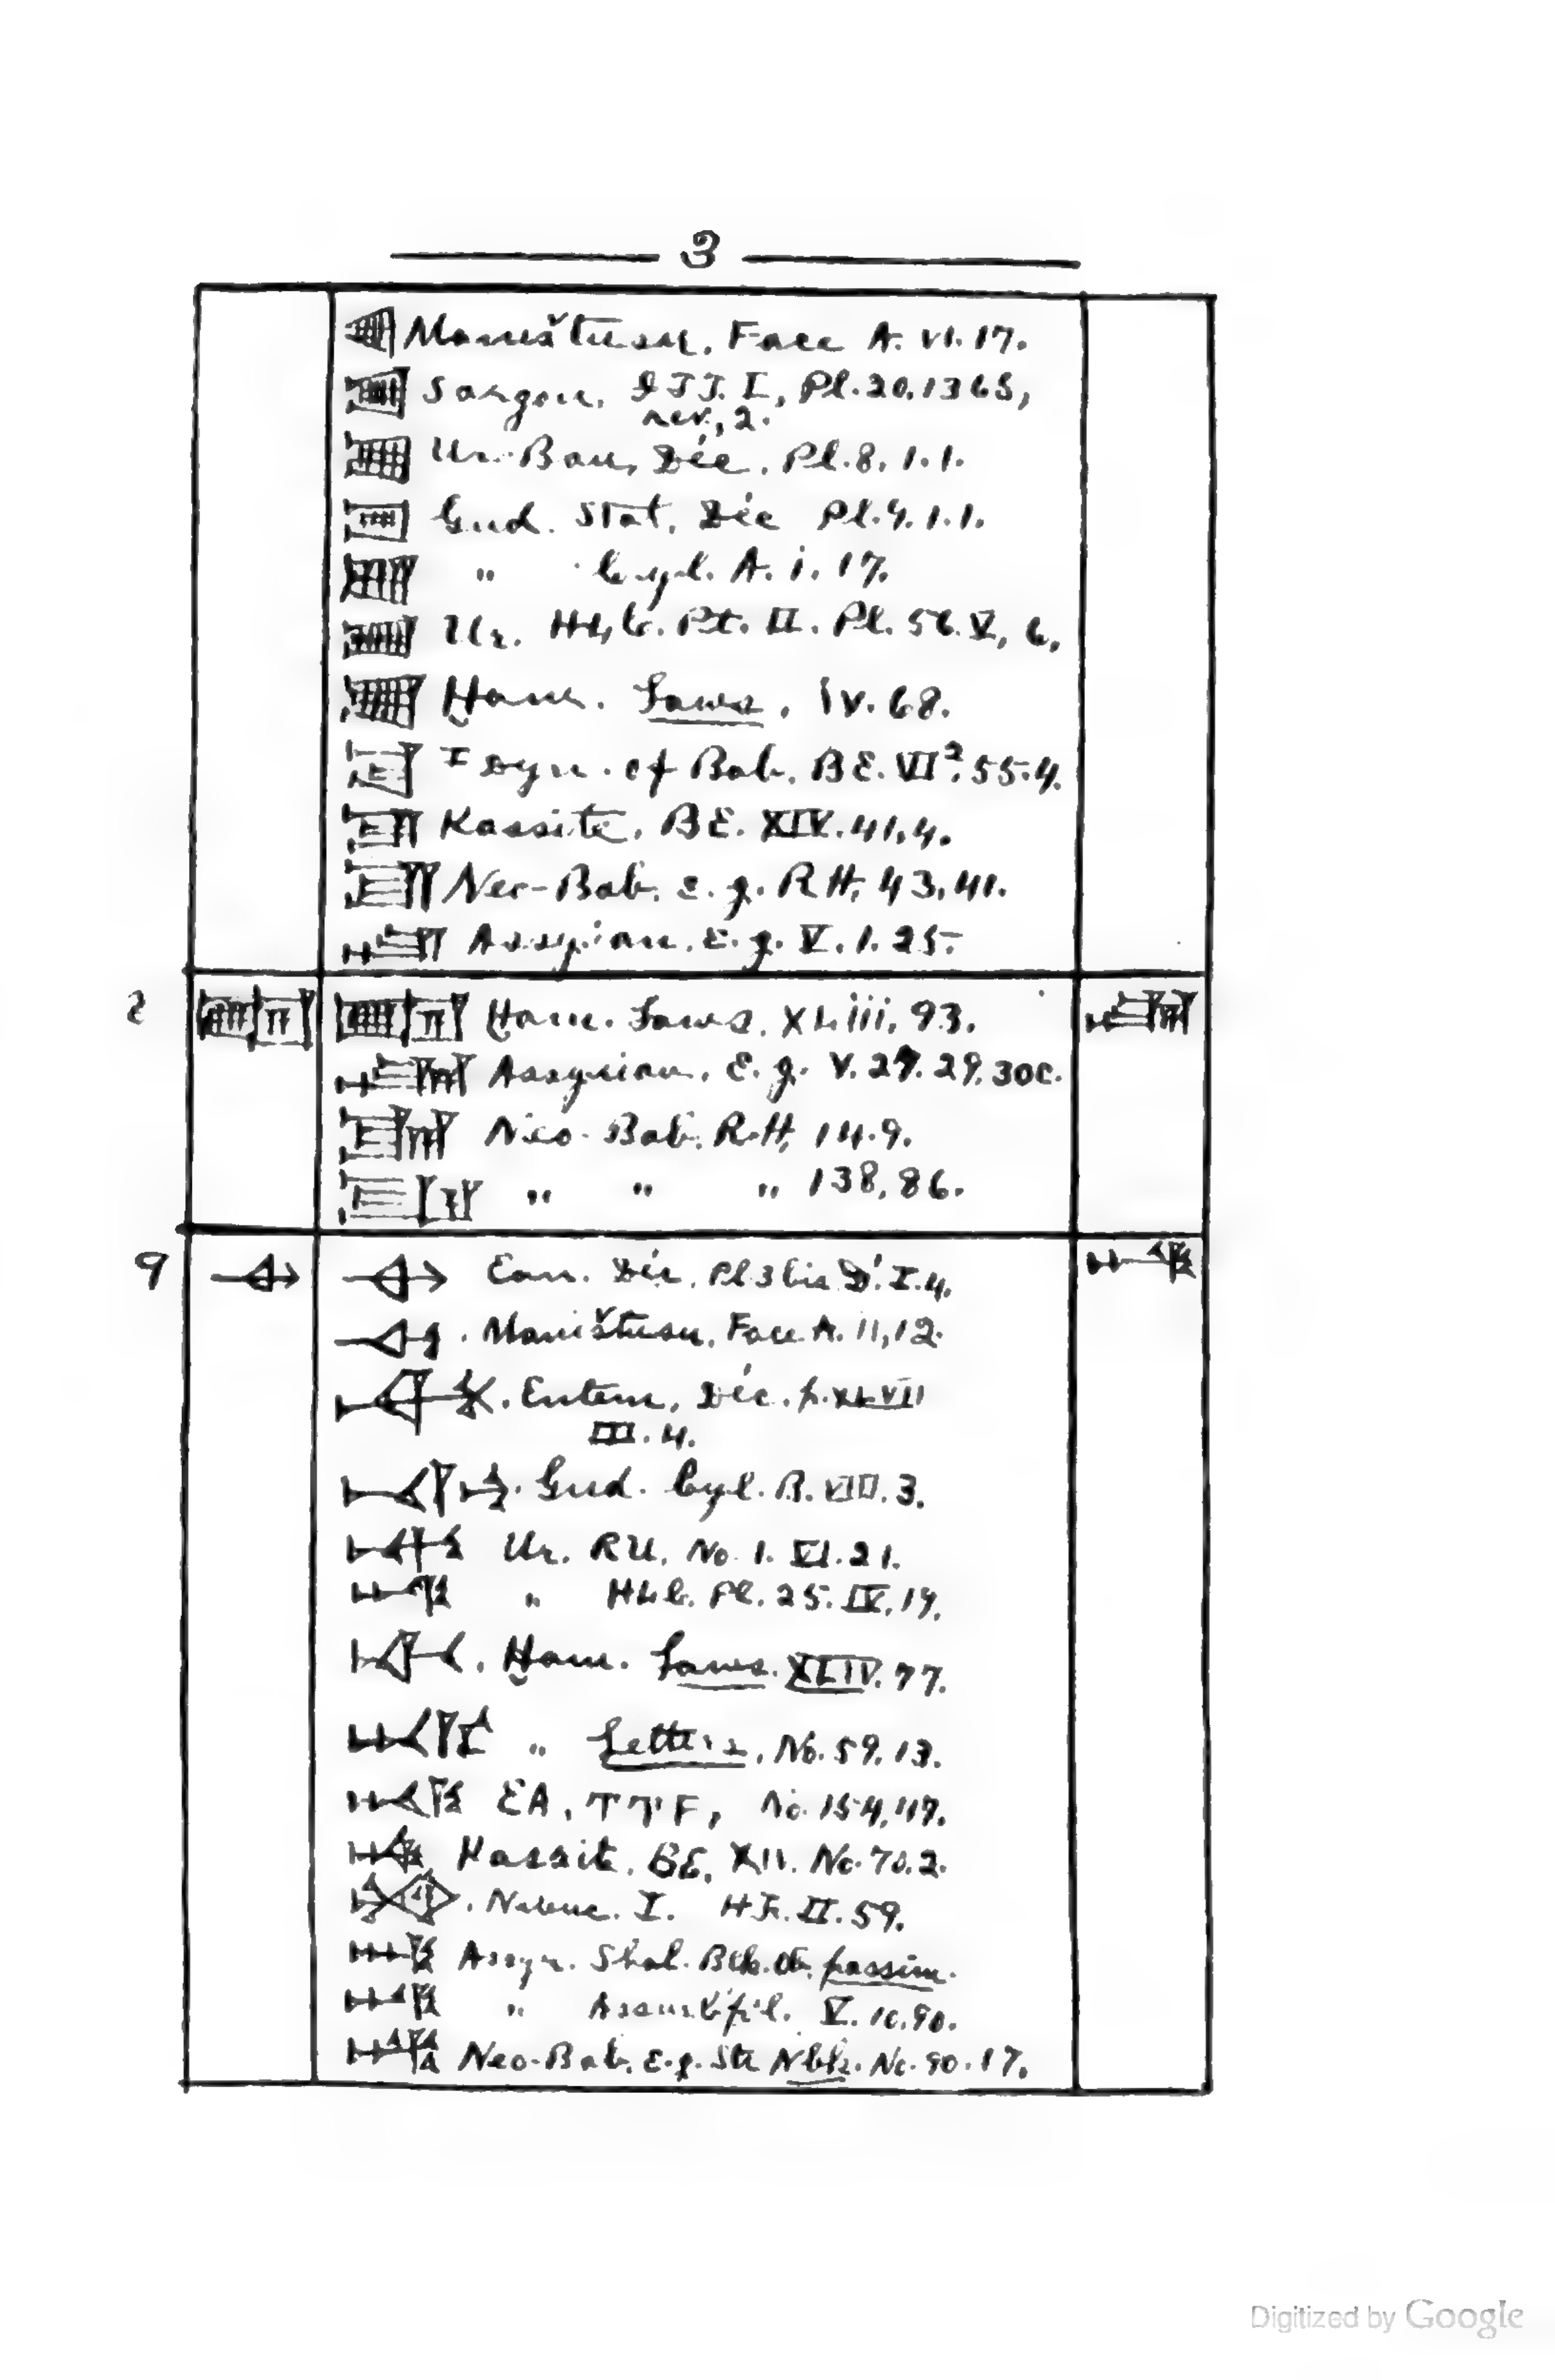 3
Maništusu, Face A. VI. 17.
Sargon. ITT. I, Pl. 20, 1365,
rev., 2.
Ur-Bau, Déc. Pl. 8, 1. 1.
Gud. Stat. Déc Pl. 9. 1. 1.
" Cyl. A. i. 17.
Ur. HLC. Pt. II. Pl. 56. V, 6.
Ḫam. Laws, IV. 68.
I Dyn. of Bab. BE. VI². 55.4.
Kassite, BE. XIV. 41, 4.
Neo-Bab. e.g. RH, 43, 41.
Assyrian. E.g. V. 1. 25.
Ḫam. Laws. XLiii, 93.
Assyrian. E.g. V. 29. 30c.
Neo-Bab. RH, 14. 9.
" " " 138, 86.
9 Ean. Déc. Pl 3 bis D'. I. 4.
Maništusu, Face A. 11, 12.
Entem, Déc. p. XLVII
III. 4.
Gud. Cyl. B. VIII. 3.
Ur. RU. No. 1. VI. 21.
" HLC. Pl. 25. IV, 19.
Ḫam. Laws. XLIV. 77.
" Letters, No. 59. 13.
EA, TTF, No. 154, 117.
Kassit. BE, XII. No. 70. 2.
I. II. 59.
Assyr. Shal. passim.
" V. 10. 90.
Neo-Bab. E.g. Str Nbk. No. 90. 17.
Digitized by Google